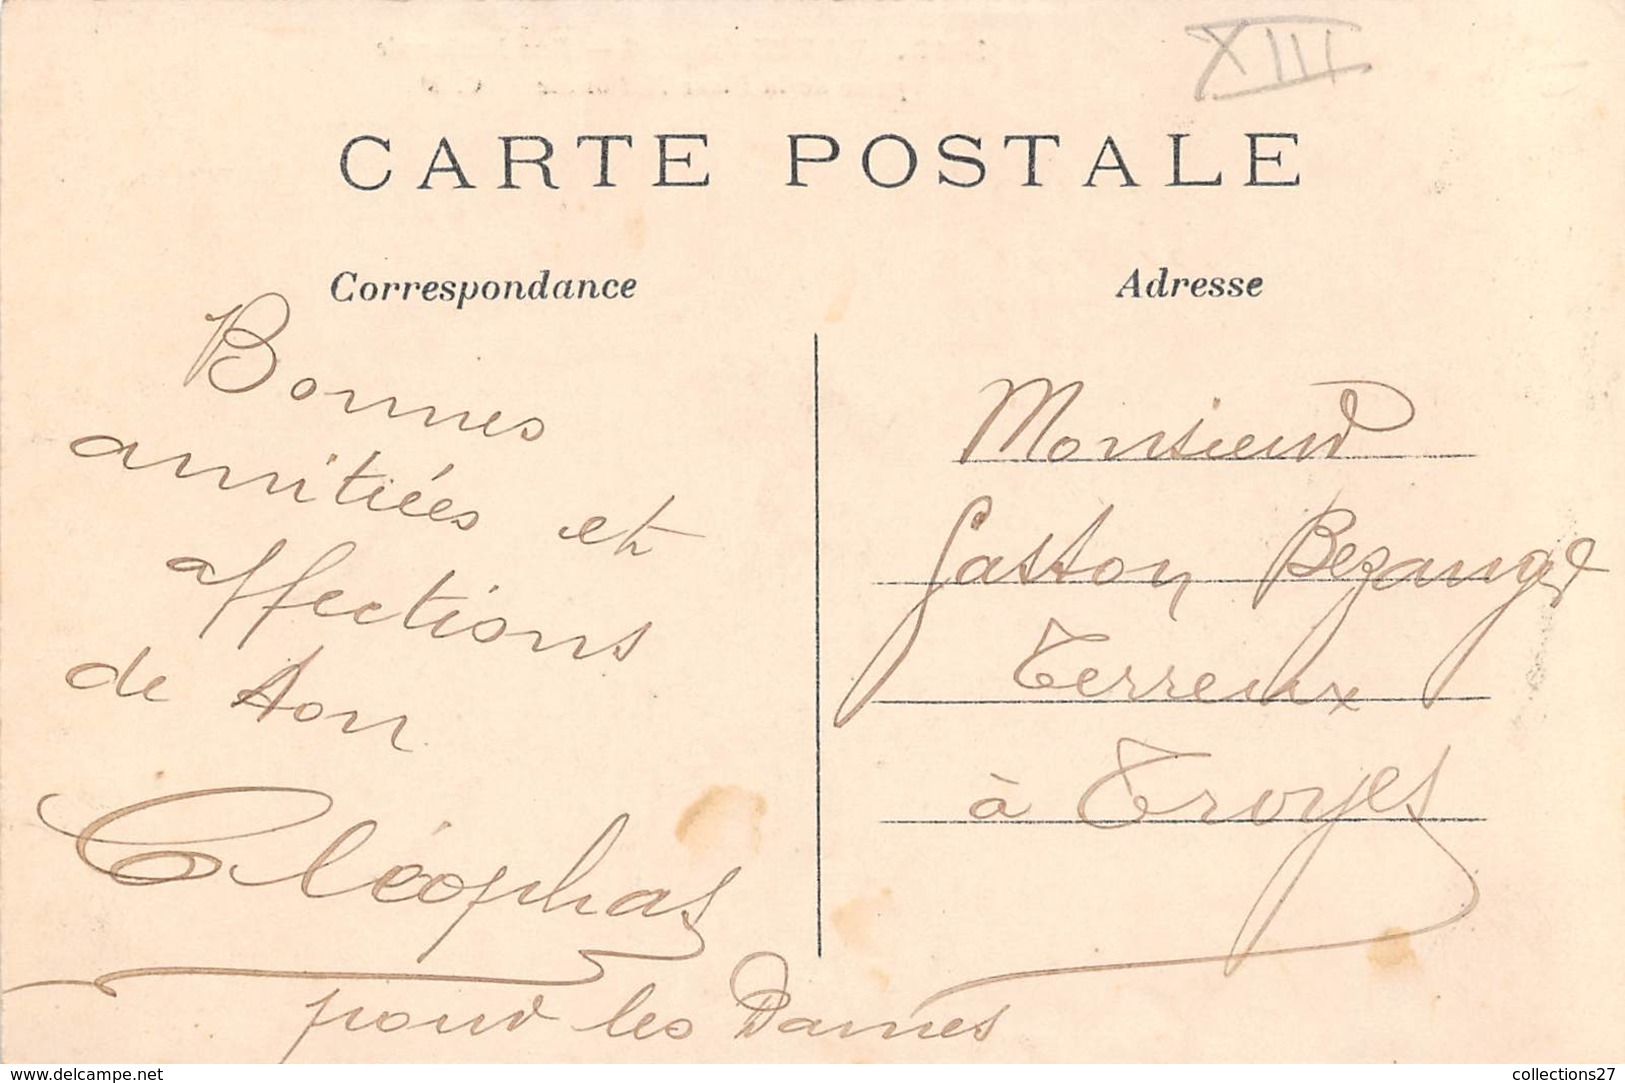 XIII
CARTE POSTALE
Correspondance
Bonnes
amitiées et
affections
de ton
Cléophas
pour les Dames
Adresse
Monsieur
Gaston Bezange
Terreux
à Troyes
www.delcampe.net
collections27